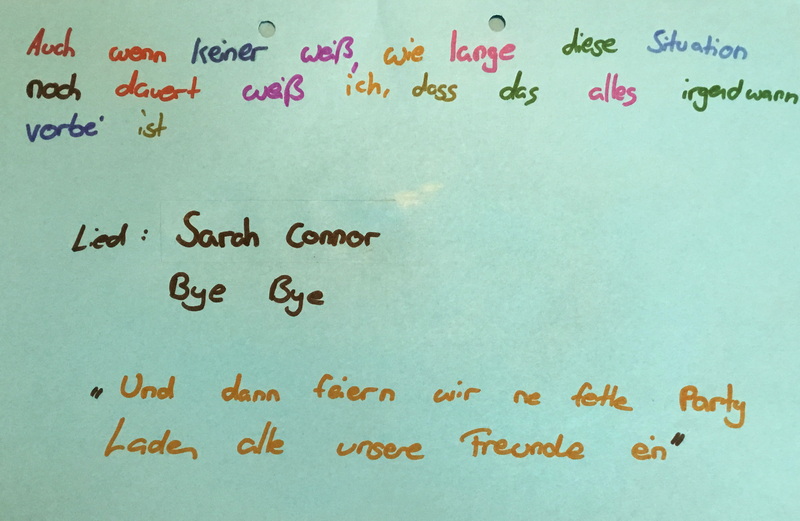 Auch wenn keiner weiß, wie lange diese Situation
noch dauert weiß ich, dass das alles irgendwann
vorbei ist
Lied: Sarah Connor
Bye Bye
"Und dann feiern wir ne fette Party
Laden alle unsere Freunde ein"